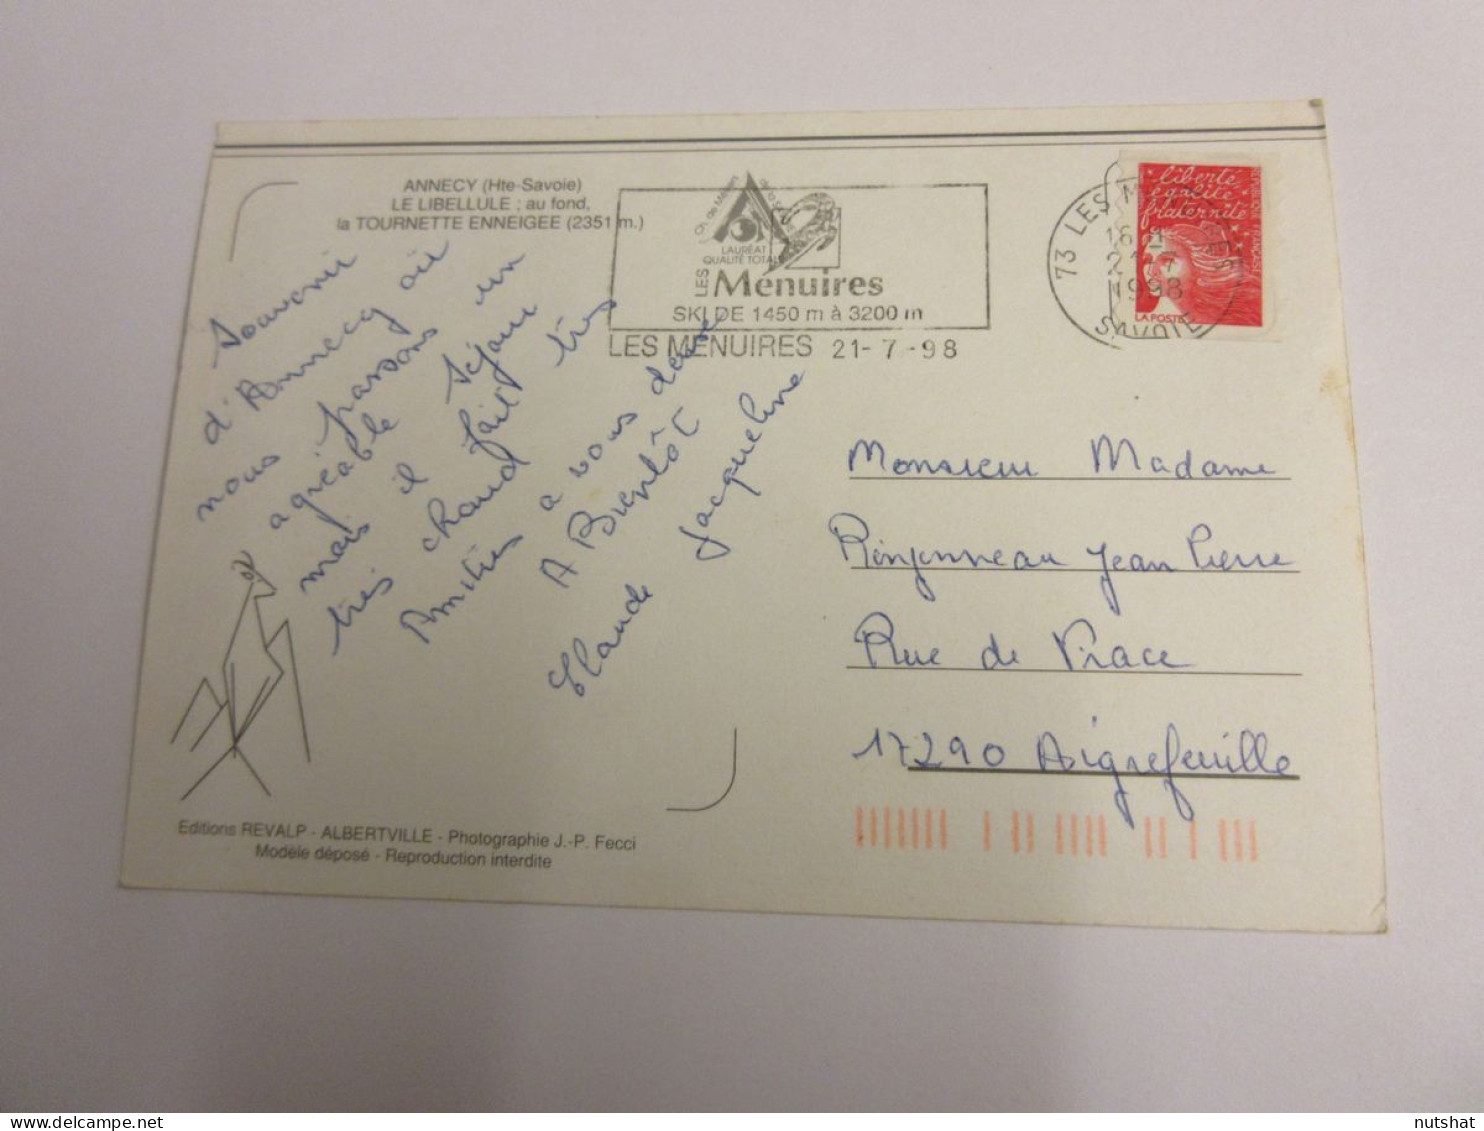 ANNECY (Hte-Savoie)
LE LIBELLULE ; au fond,
la TOURNETTE ENNEIGEE (2351 m.)
Souvenir
d'Annecy où
nous passons un
agréable séjour
mais il fait très
très chaud
Amitiés a vous deux
A Bientôt
Claude Jacqueline
Editions REVALP - ALBERTVILLE - Photographie J.-P. Fecci
Modèle déposé - Reproduction interdite
Ch. de Métiers de la
LAURÉAT
QUALITÉ TOTALE
LES Menuires
SKI DE 1450 m à 3200 m
LES MENUIRES 21-7-98
73 LES MENUIRES
16 H
21-7
1998
SAVOIE
liberté
égalité
fraternité
LA POSTE
Monsieur Madame
Rinjonneau Jean Pierre
Rue de Place
17290 Aigrefeuille
nutshat
delcampe.net